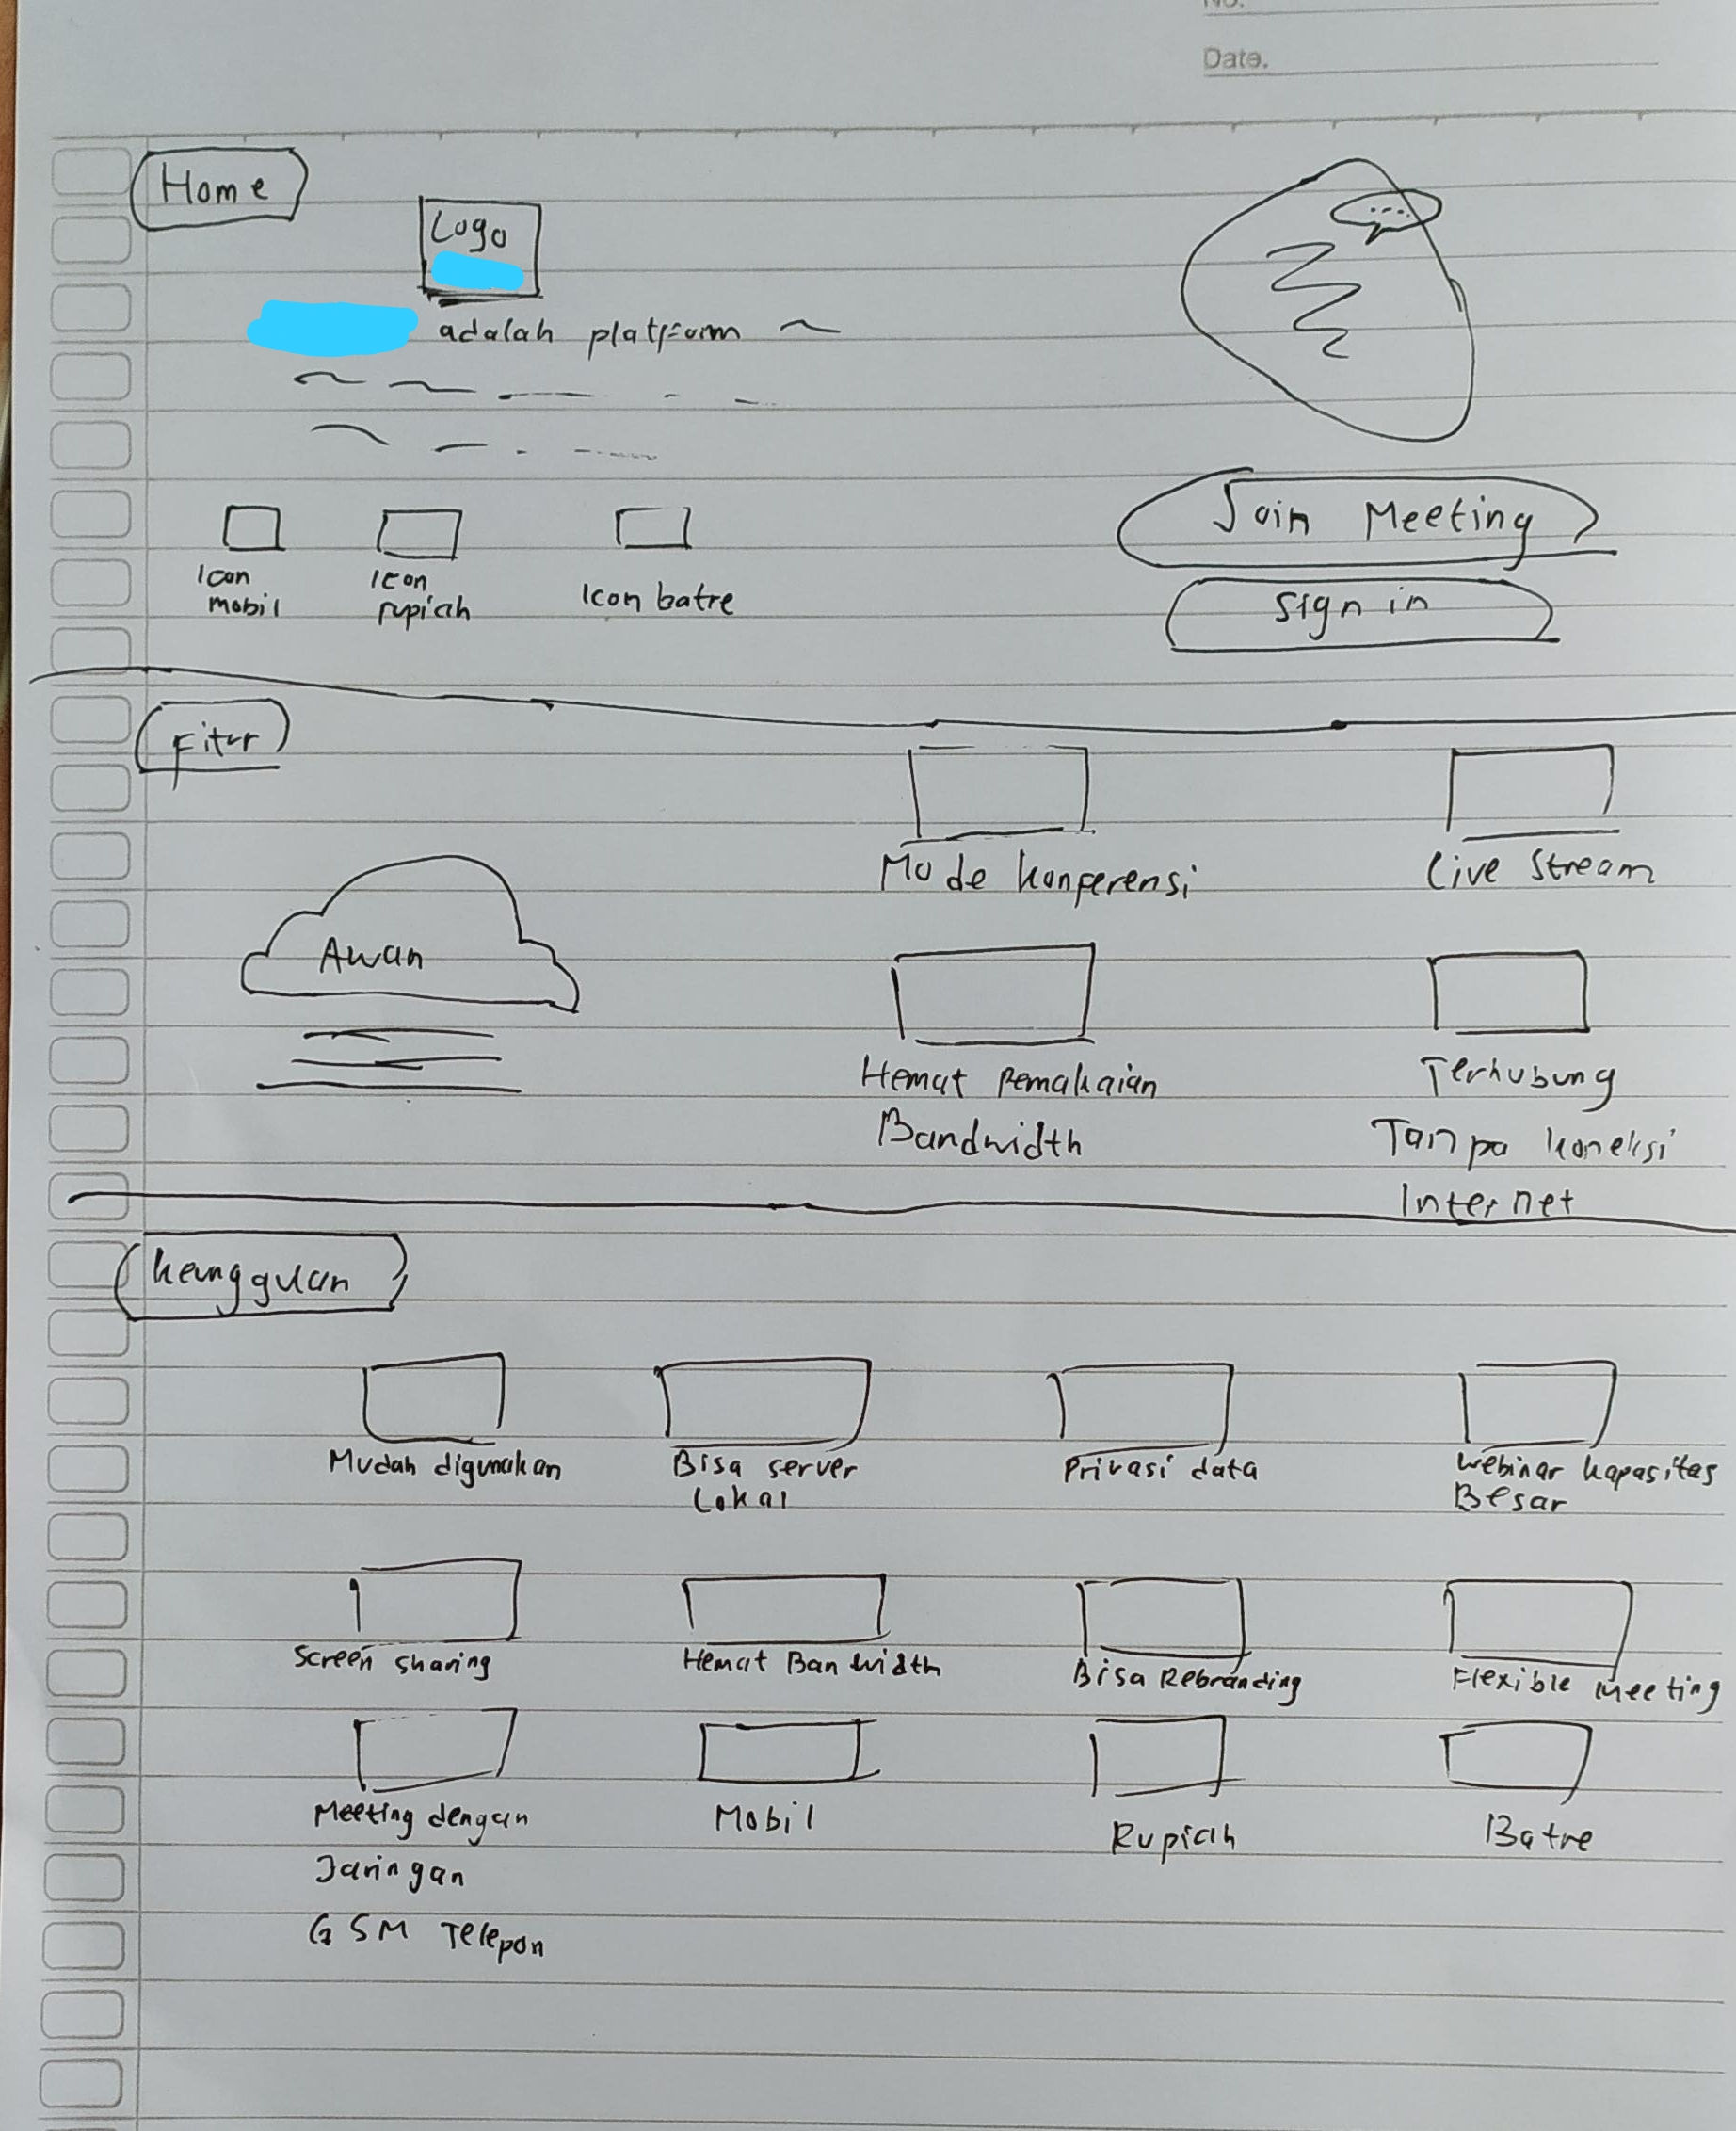 No.
Date.
Home
Logo
adalah platform
Icon
mobil
Icon
rupiah
Icon batre
Join Meeting
Sign in
Fitur
Mode konferensi
Live Stream
Awan
Hemat pemakaian
Bandwidth
Terhubung
Tanpa koneksi
Internet
keungguan
Mudah digunakan
Bisa server
Lokal
Privasi data
Webinar kapasitas
Besar
Screen sharing
Hemat Bandwidth
Bisa Rebranding
Flexible Meeting
Meeting dengan
Jaringan
GSM Telepon
Mobil
Rupiah
Batre